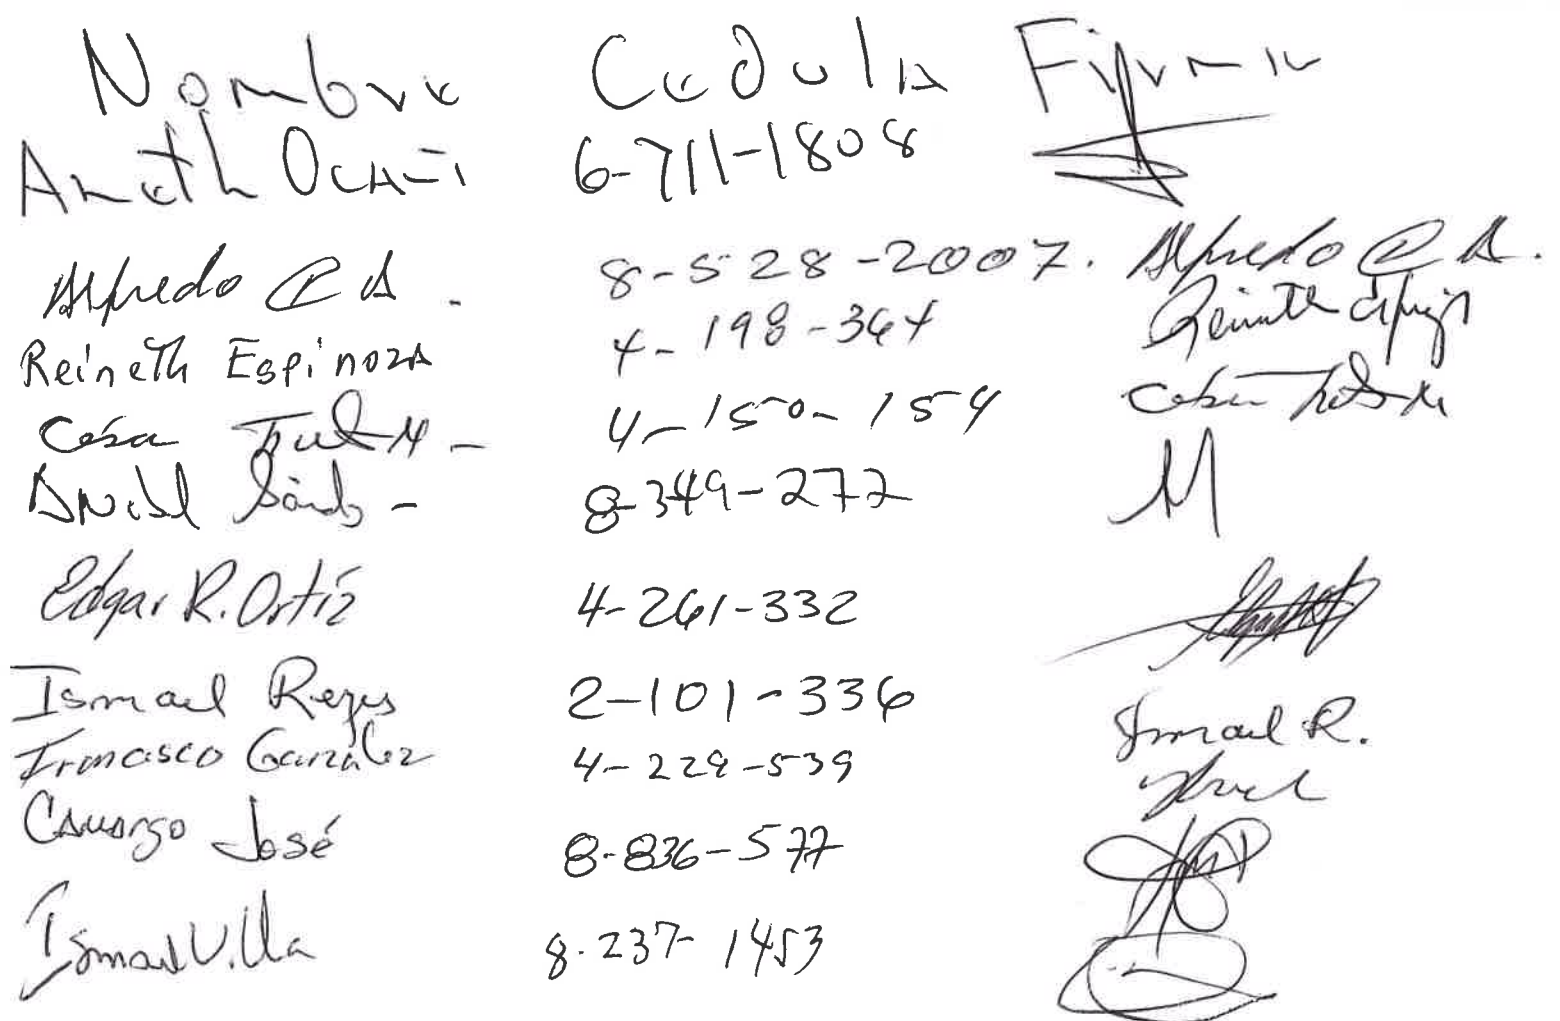 Nombre Cedula Firma
Aneth Ocaña 6-711-1808
Alfredo P A. 8-528-2007. Alfredo P A.
Reineth Espinoza 4-198-364 Reineth
Cesar 4-150-154 Cesar
8-349-277
Edgar R. Ortíz 4-261-332
Ismael Reyes 2-101-336 Ismael R.
Francisco González 4-229-539
Camargo José 8-836-577
Ismael Villa 8-237-1453